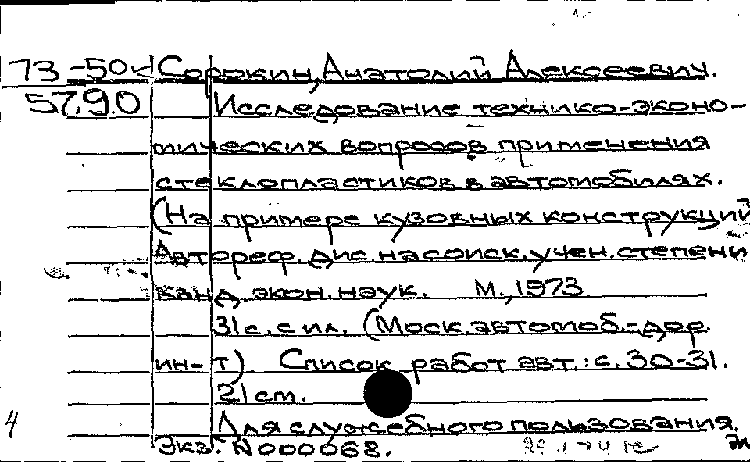 73-50 Сорокин, Анатолий Алексеевич.
5790 Исследование технико-эконо-
мических вопросов применения
стеклопластиков в автомобилях.
(На примере кузовных конструкций
Автореф. дис. на соиск. учен. степени
канд. экон. наук. М., 1973
31 с. с ил. (Моск. автомоб.-дор.
ин-т). Список работ авт.: с. 30-31.
21 см.
4 Для служебного пользования.
Экз. N000068.